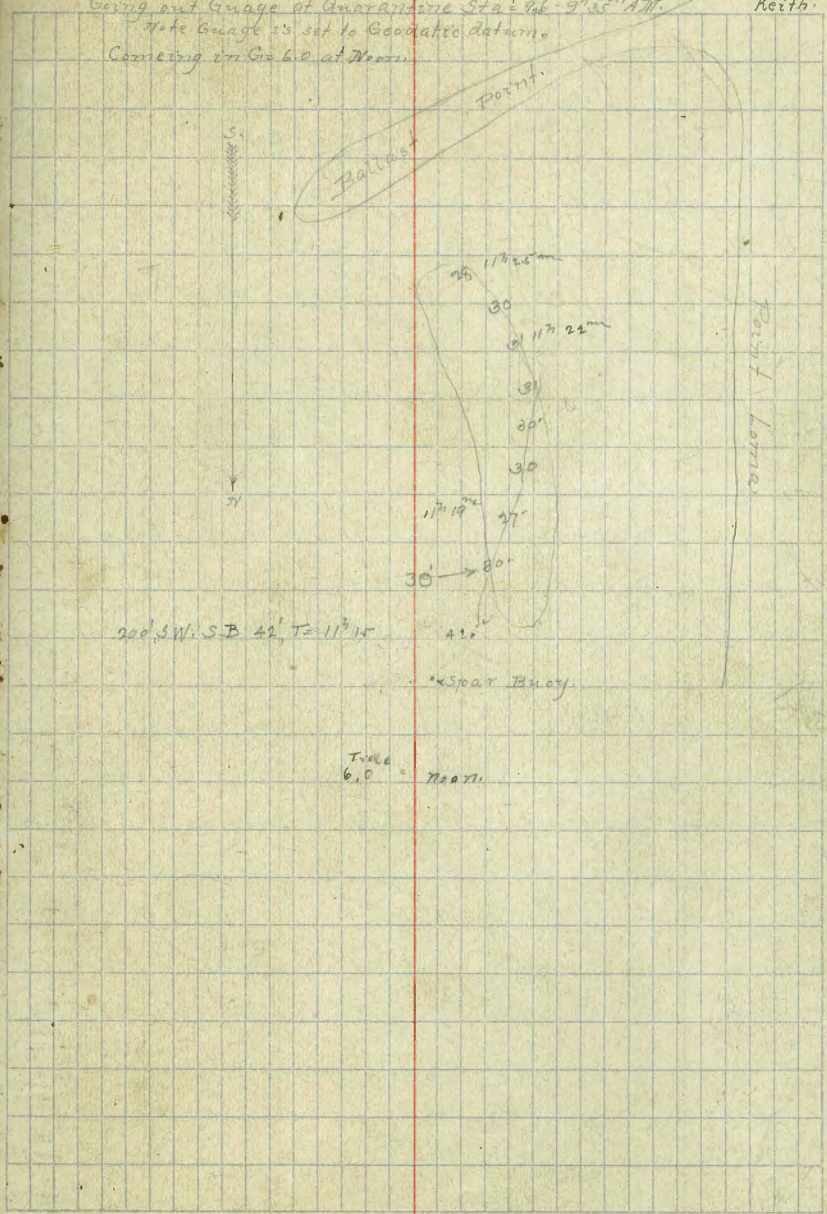 Going out Guage at Quarantine Sta = 9h 35m AM.
Keith.
Note Guage is set to Geodatic datum.
Comeing in G = 6.0 at Noon.
Ballast Point.
S.
28 11h 25m
30
11h 22m
31
30'
30
11h 19m
27'
30' → 30'
N
Point Loma
200' S.W. S.B 42', T= 11h 15
42'
Spar Buoy
Tide
6.0 = noon.